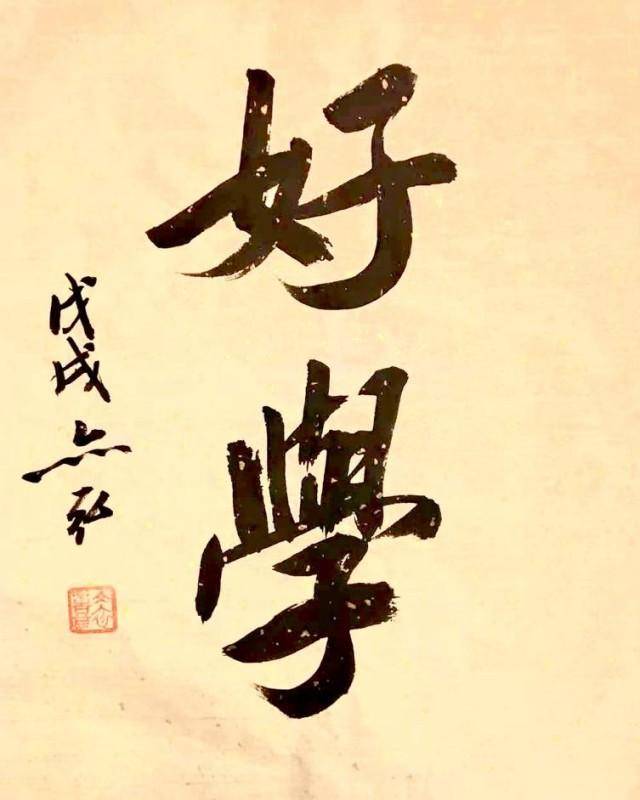 好學
戊戌